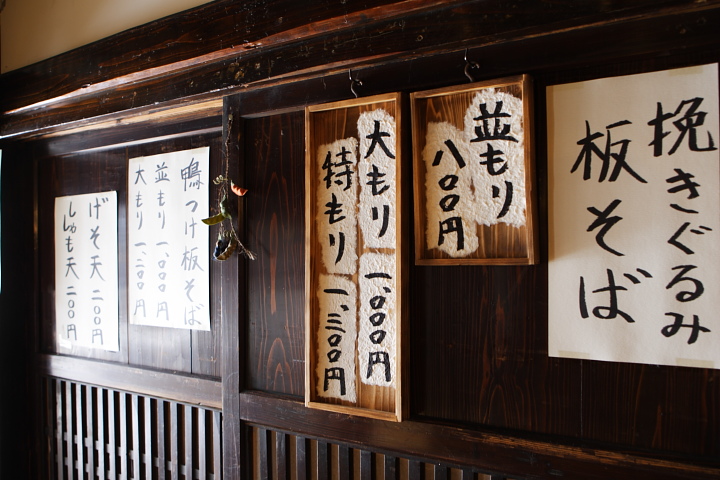 挽きぐるみ
板そば
並もり
八〇〇円
大もり 一、〇〇〇円
特もり 一、三〇〇円
鴨つけ板そば
並もり 一、〇〇〇円
大もり 一、二〇〇円
げそ天 二〇〇円
ししゃも天 二〇〇円